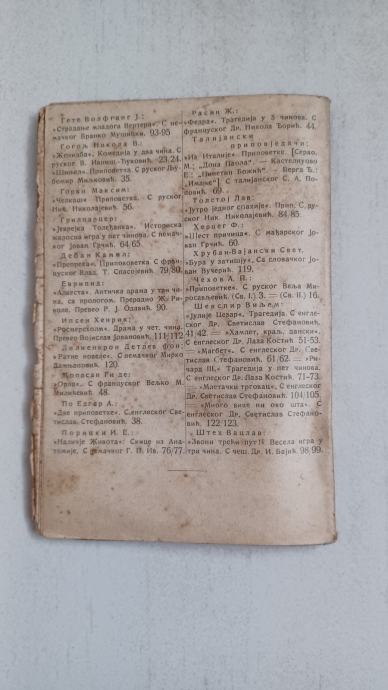 Гете Волфганг Ј.:
«Страдање младога Вертера». С не-
мачког Бранко Мушицки. 93-95
Гогољ Никола В.
«Женидба». Комедија у два чина. С
руског В. Ивниш-Ђуковић. 23,24.
«Шињел». Приповетка. С руског Љу-
бомир Миљковић. 35
Горки Максим:
«Челкаш» Приповетка. С руског
Ник. Николајевић. 56.
Грилпарцер:
«Јеврејка Толеђанка». Историска
жалосна игра у пет чинова. С немач-
ког Јован Грчић. 64,65.
Дебан Камил:
«Препрека». Приповетка С фран-
цуског Влад. Т. Спасојевић. 79/80.
Еврипид:
«Алкеста». Античка драма у три чи-
на, са прологом. Прерадио Ж. Ри-
воле. Превео Р. Ј. Одавић. 90.
Ибсен Хенрик:
«Росмерсхолм». Драма у чет. чина.
Превео Војислав Јовановић. 111/112
Лилиенкрон Детлев фон:
«Ратне новеле». С немачког Мирко
Дамњановић. 120.
Мопасан Ги де:
«Орла». С француског Вељко М.
Милићевић. 48.
По Едгар А.:
«Две приповетке». С енглеског Све-
тислав. Стефановић. 38.
Порицки И. Е.:
«Наличје Живота»: Скице из Ана-
томије. С немачког Г. П. Ив. 76/77.
Расин Ж.:
«Федра». Трагедија у 5 чинова. С
француског Др. Никола Ђорић. 44.
Талијански
приповедачи:
«Из Италије» Приповетке. [Серао.
М.: „Дона Паола“. — Кастелнуово
Е.: „Пинетин Божић“. — Верга Ђ.:
„Имање“] С талијанског С. А. По-
повић. 69.
Толстој Лав:
«Јутро једног спахије». Прип. С ру-
ског Ник. Николајевић. 84/85.
Херцег Ф.:
«Шест причица». С мађарског Јо-
ван Грчић. 60.
Хрубан-Вајански Свет.
«Бура у затишју». Са словачког Јо-
ван Вучерић. 119.
Чехов А. П.:
«Приповетке». С руског Веља Ми-
росављевић. (Св. I.) 3. — (Св. II.) 16.
Шекспир Виљем:
«Јулије Цезар». Трагедија. С енглес-
ког Др. Светислав Стефановић,
41/42. — «Хамлет, краљ. дански».
С енглеског Др. Лаза Костић 51-53.
— «Магбет». С енглеског Др. Све-
тислав Стефановић, 61/62. — «Ри-
чард III.» Трагедија у пет чинова.
С енглеског Др. Лаза Костић 71-73.
— «Млетачки трговац», С енглеског
Др. Светислав Стефановић. 104/105.
— «Много вике ни око шта». С
енглеског Др, Светислав Стефано-
вић. 122/123.
Штех Вацлав:
«Звони трећи пут!» Весела игра у
три чина. С чеш. Др. И. Бајић. 98/99.